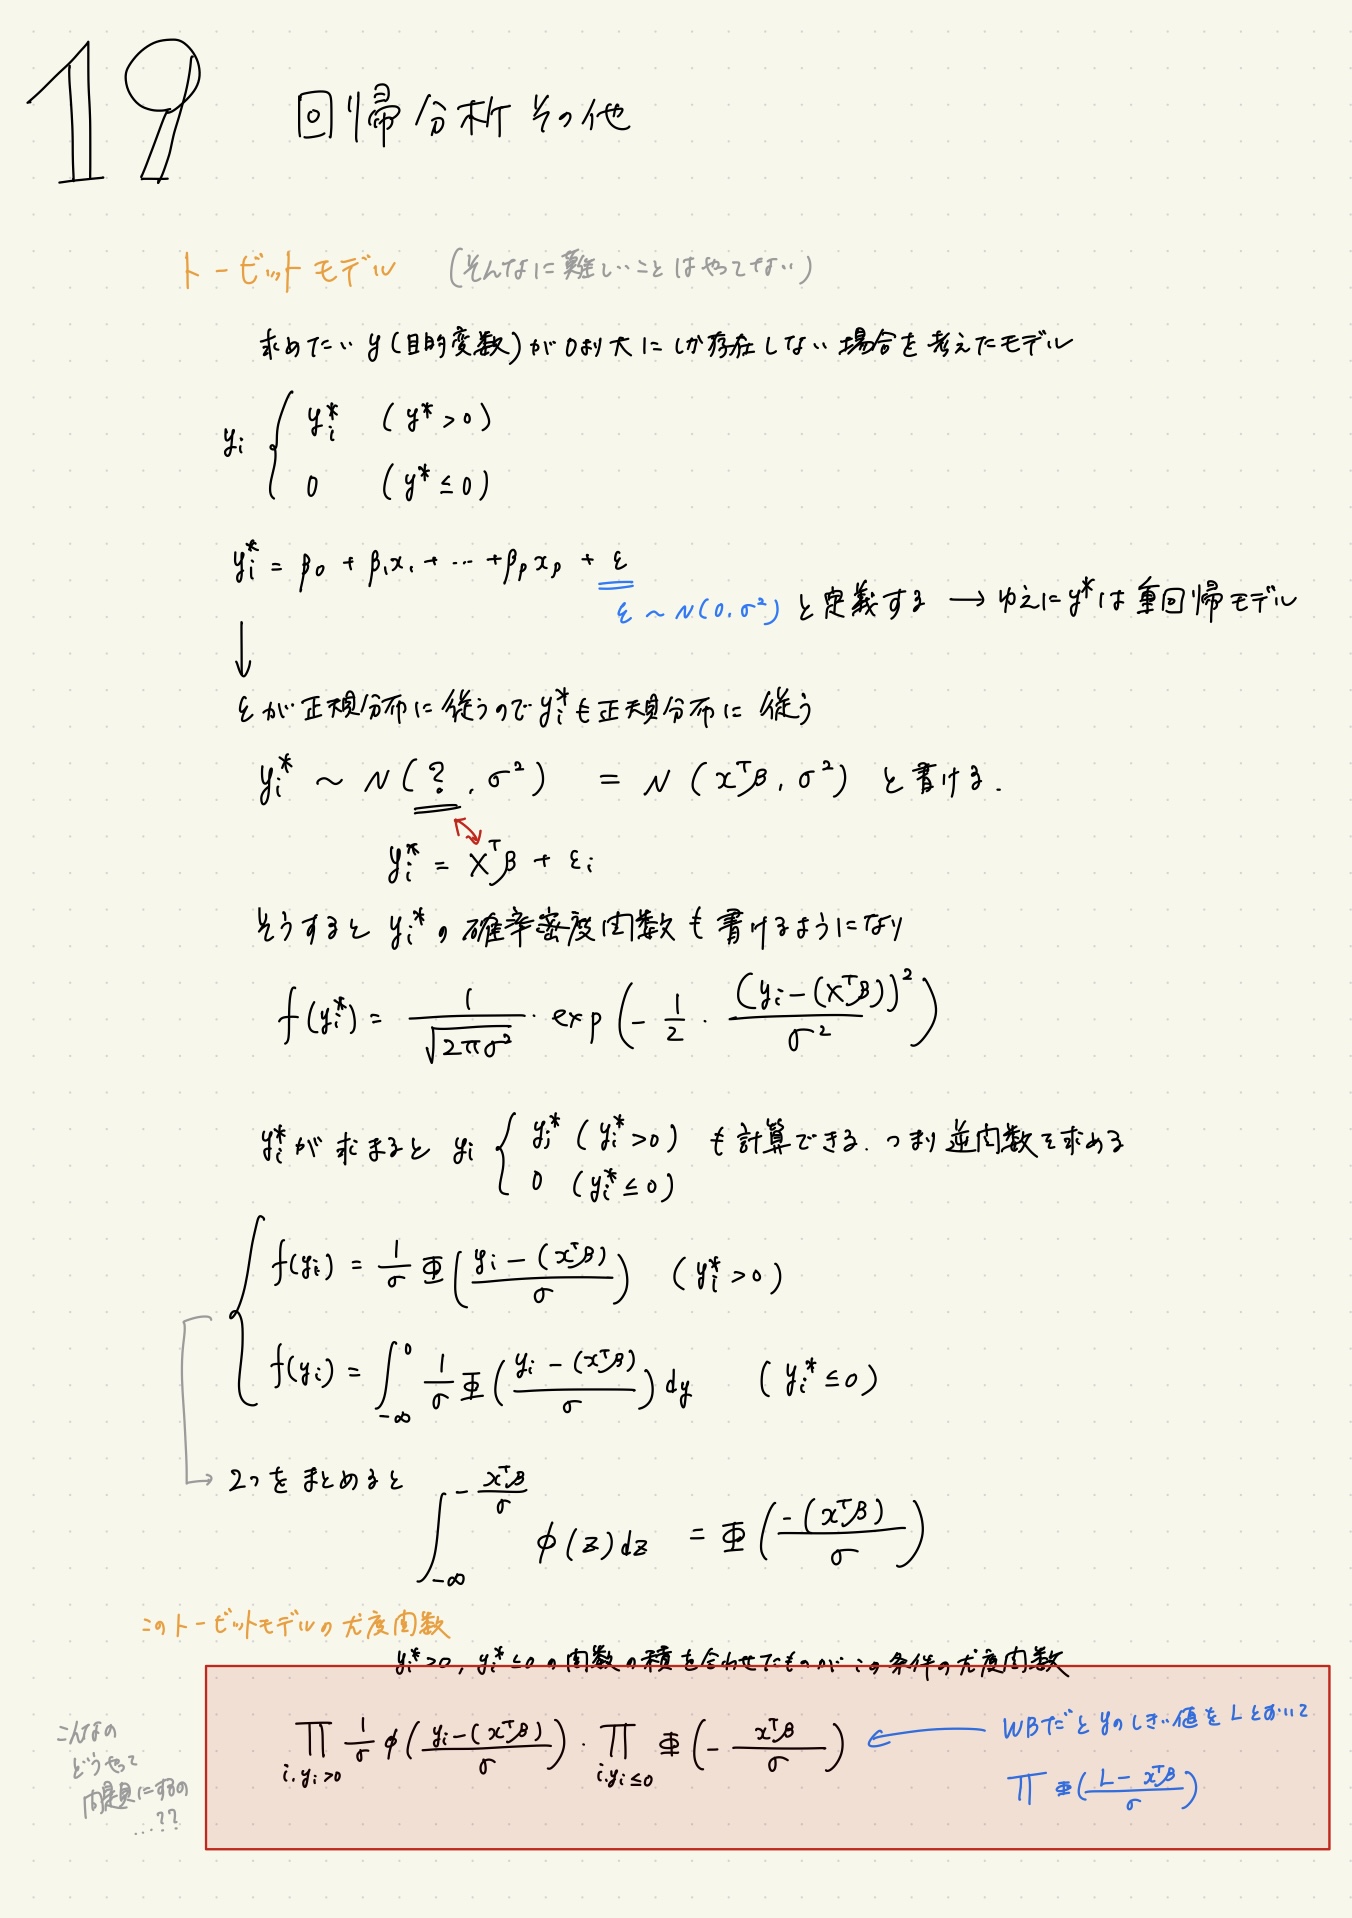 19 回帰分析その他
トービットモデル (そんなに難しいことはやってない)
求めたい y (目的変数) が 0より大にしか存在しない場合を考えたモデル
yi { yi* (y* > 0)
0 (y* ≤ 0)
yi* = β0 + β1x1 + … + βpxp + ε
ε ~ N(0, σ²) と定義する → ゆえに y* は重回帰モデル
↓
εが正規分布に従うので yi* も正規分布に従う
yi* ~ N(?, σ²) = N(xᵀβ, σ²) と書ける.
yi* = Xᵀβ + εi
そうすると yi* の確率密度関数も書けるようになり
f(yi*) = 1/√(2πσ²) · exp(- 1/2 · (yi - (Xᵀβ))²/σ²)
yi* が求まると yi { yi* (yi* > 0) も計算できる. つまり逆関数を求める
0 (yi* ≤ 0)
{ f(yi) = 1/σ Φ((yi - (xᵀβ))/σ) (yi* > 0)
f(yi) = ∫_{-∞}^{0} 1/σ Φ((yi - (xᵀβ))/σ) dy (yi* ≤ 0)
→ 2つをまとめると
∫_{-∞}^{-xᵀβ/σ} φ(z)dz = Φ(-(xᵀβ)/σ)
このトービットモデルの尤度関数
yi* > 0, yi* ≤ 0 の関数の積を合わせたものがこの条件の尤度関数
∏_{i.yi>0} 1/σ φ((yi - (xᵀβ))/σ) · ∏_{i.yi≤0} Φ(- xᵀβ/σ)
← WBだと yのしきい値を Lとおいて
∏ Φ((L - xᵀβ)/σ)
こんなの
どうやって
問題にするの
…??